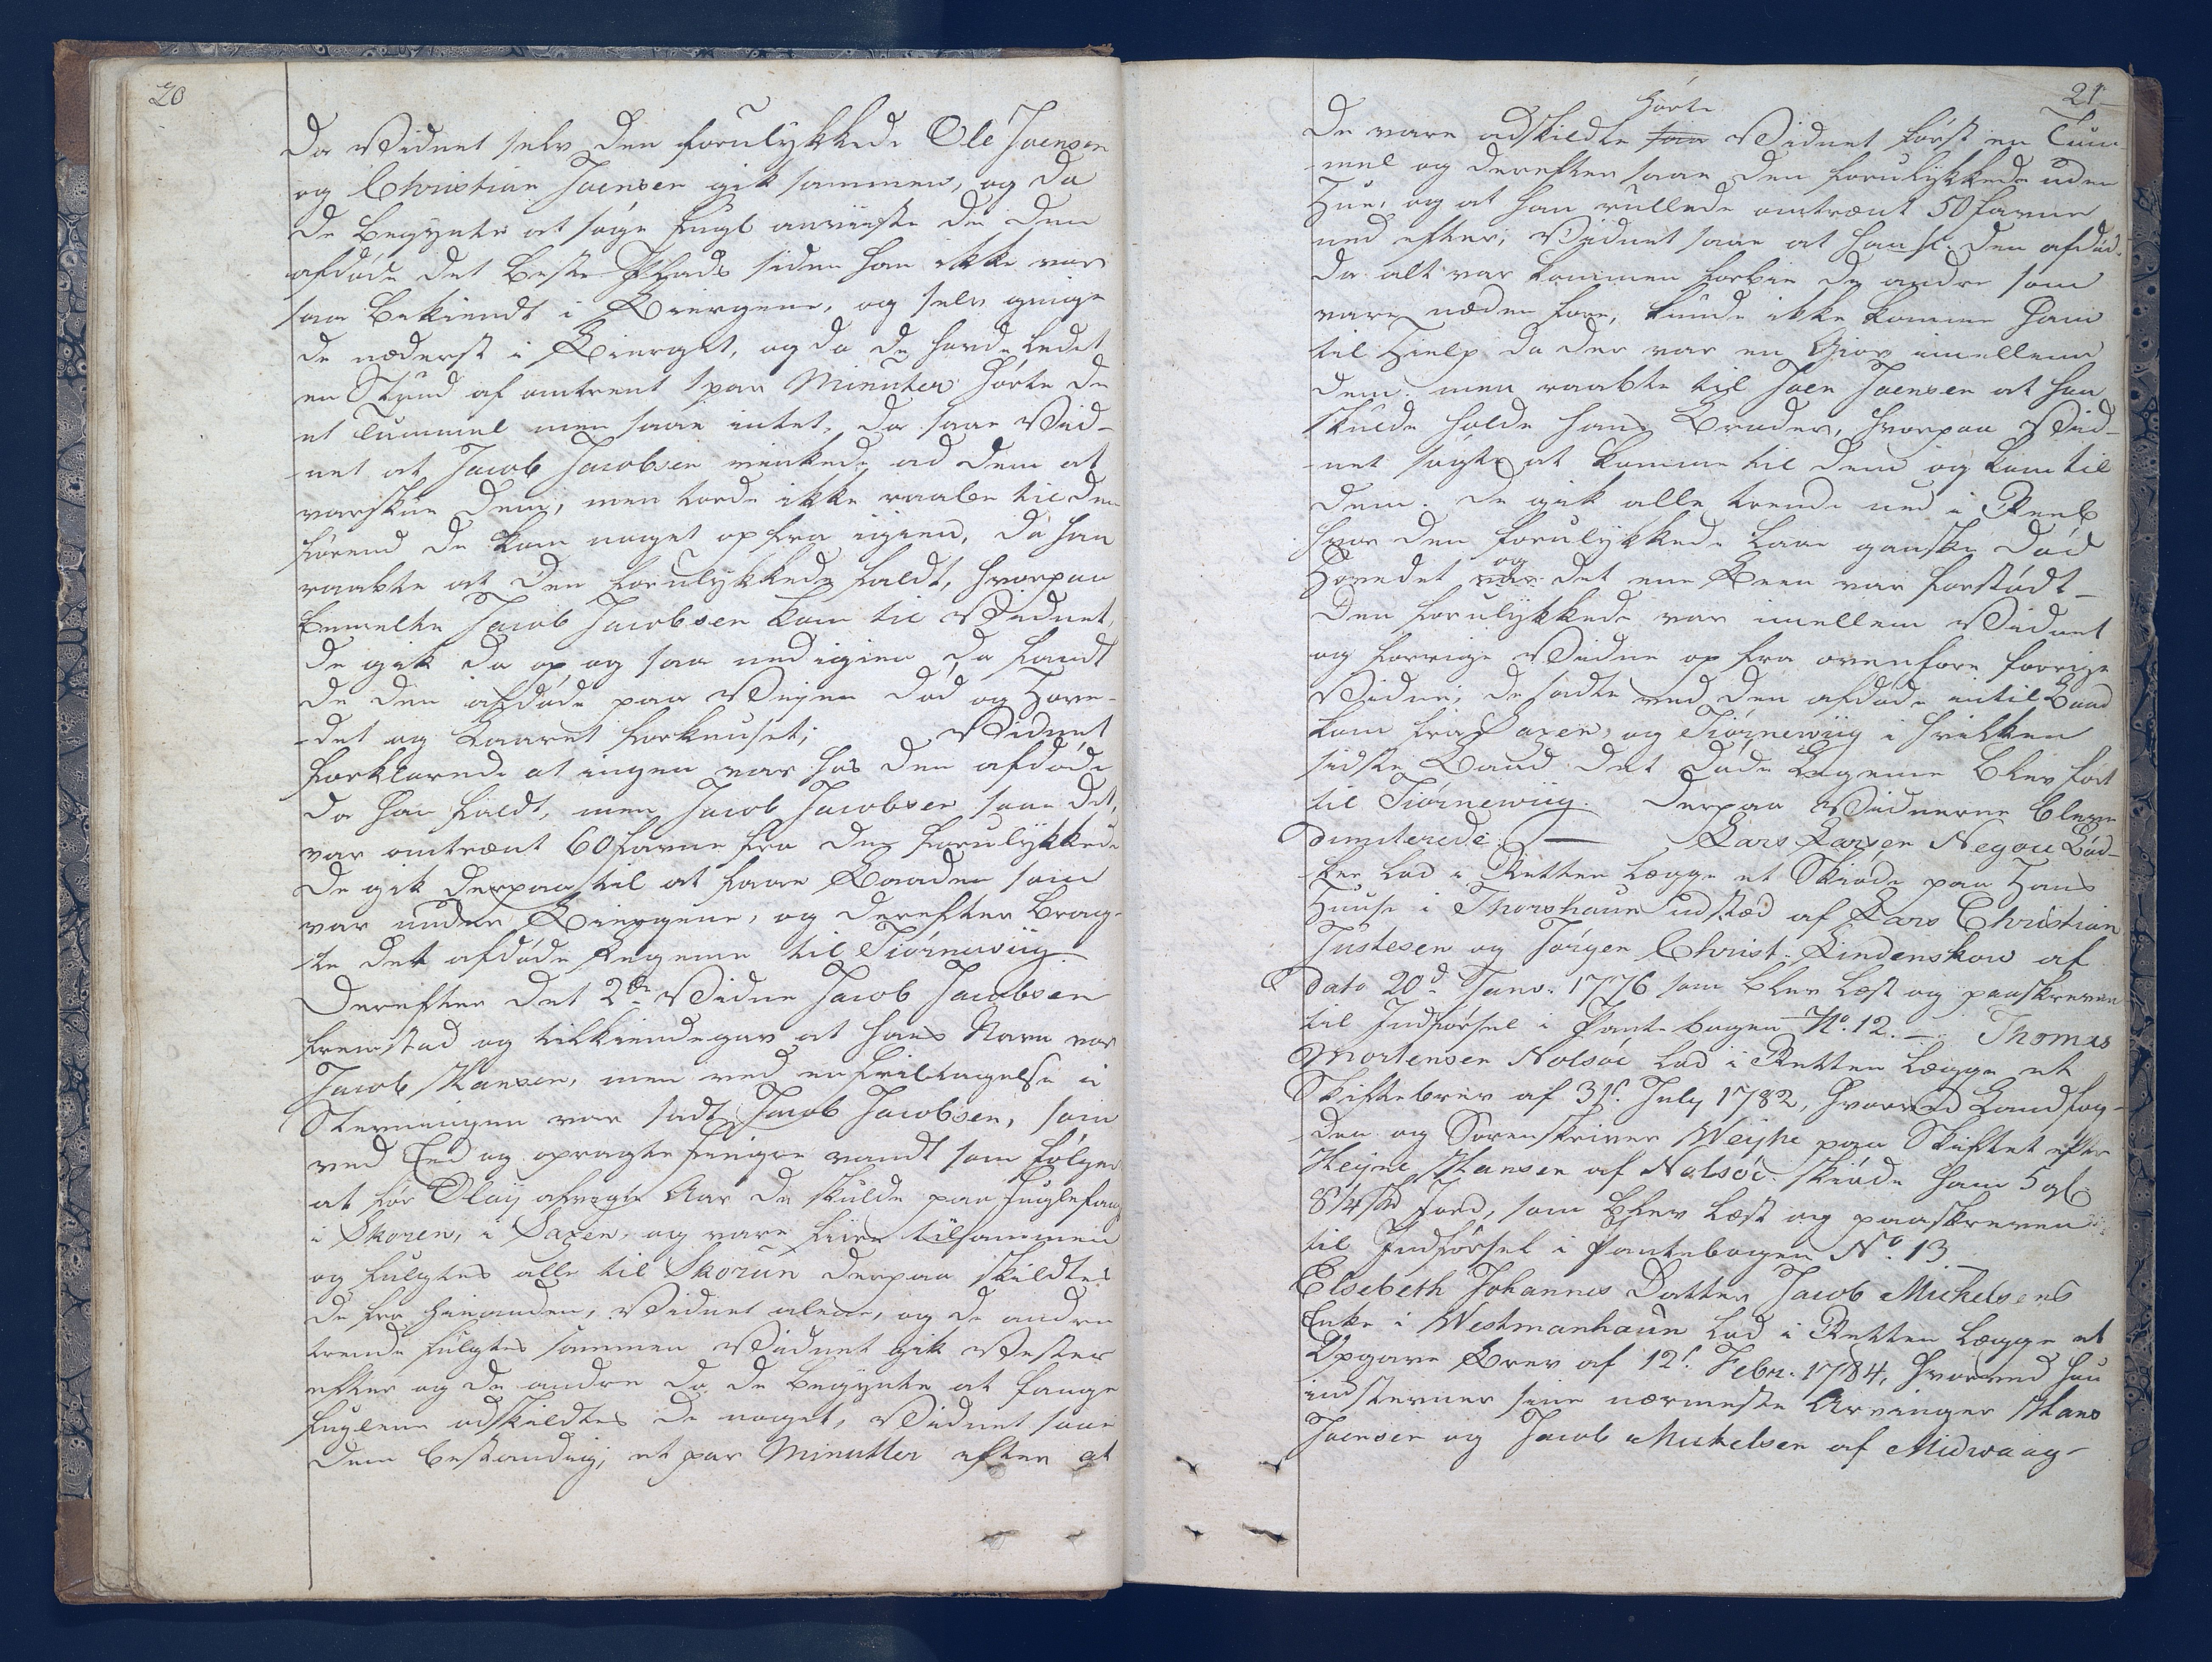 20
Da Vidnet selv den forulykkede Ole Joensen
og Christian Joensen gik sammen, og da
de begynte at søge Fugl anviiste de den
afdøde det beste Plads siden han ikke var
saa bekiendt i Biergene, og selv ginge
de nederst i Bierget, og da de havde ledet
en Stund af omtrent 1 par Minuter hørte de
et Tummel men saae intet, da saae Vid-
net at Jacob Jacobsen vinkede ad dem at
varskue dem, men torde ikke raabe til dem
førend de kom noget op fra igien, da han
raabte at den forulykkede faldt, hvorpaa
bemelte Jacob Jacobsen kom til Vidnet,
de gik da op og saa ned igien da fandt
de den afdøde paa Veyen død og Hove-
det og Laaret forknuset; Vidnet
forklarede at ingen var hos den afdøde
da han faldt, men Jacob Jacobsen saae det,
var omtrænt 60 favne fra den forulykkede
de gik derpaa til at faae Baaden som
var under Biergene, og derefter brag-
te det afdøde Legeme til Tiørnewiig
Derefter det 2de Vidne Jacob Jacobsen
fremstod og tilkiendegav at hans Navn var
Jacob Hansen, men ved en feiltagelse i
Stevningen var sadt Jacob Jacobsen, som
ved Eed og opragte Finger vandt som følger
at før Olay afvigte Aar de skulde paa Fuglefang
i Skoren, i Saxen, og vare fiire tilsammen
og fulgtes alle til Skorun derpaa skildtes
de fra hinanden, Vidnet alene, og de andre
trende fulgtes sammen Vidnet gik Vester
efter og de andre da de begynte at fange
Fuglene adskildtes de noget, Vidnet saae
dem bestandig; et par Minutter efter at
21
hørte
De vare adskildte saae Vidnet først en Tum-
mel og derefter saae den forulykkede uden
Hue, og at han rullede omtrænt 50 favne
ned efter; Vidnet saae at han sc: den afdød:
da alt var kommen forbie de andre som
vare neden fore, kunde ikke komme ham
til Hielp da der var en Giov imellem
dem. men raabte til Joen Joensen at han
skulde holde hans Broder, hvorpaa Vid-
net søgte at komme til dem og kom til
dem. De gik alle trende ned i Reeb
hvor den forulykkede laae ganske død
og
Hovedet var det ene Been var forstødt
Den forulykkede var imellem Vidnet
og forrige Vidne op fra ovenfore forrige
Vidne; de sadte ved den afdøde intil Baad
kom fra Saxen, og Tiørnewiig i hvilken
sidste Baad det døde Legeme blev ført
til Tiørnewiig. Derpaa Vidnerne bleve
dimiterede. Lars Larsen Negou Bød-
ker lod i Retten lægge et Skiøde paa Hans
Huuse i Thorshaun udstæd af Lars Christian
Justesen og Jørgen Christ: Lindenskow af
Dato 20d. Janv. 1776 som blev læst og paaskreven
til Indførsel i Pantebogen No. 12. Thomas
Mortensen Nolsøe lod i Retten lægge et
Skiftebrev af 31t. July 1782, hvorved Landfog-
den og Sorenskriver Weyhe paa Skiftet efter
Heyne Hansen af Nolsøe skiøde ham 5 gl:
8 1/4 sk Jord, som blev læst og paaskreven
til Indførsel i Pantebogen No. 13
Elsebeth Johannes Datter Jacob Michelsens
Enke i Westmanhaun lod i Retten lægge et
Opgave Brev af 12t. Febr. 1784, hvorved hun
indstevner sine nærmeste Arvinger Hans
Joensen og Jacob Michelsen af Midwaag